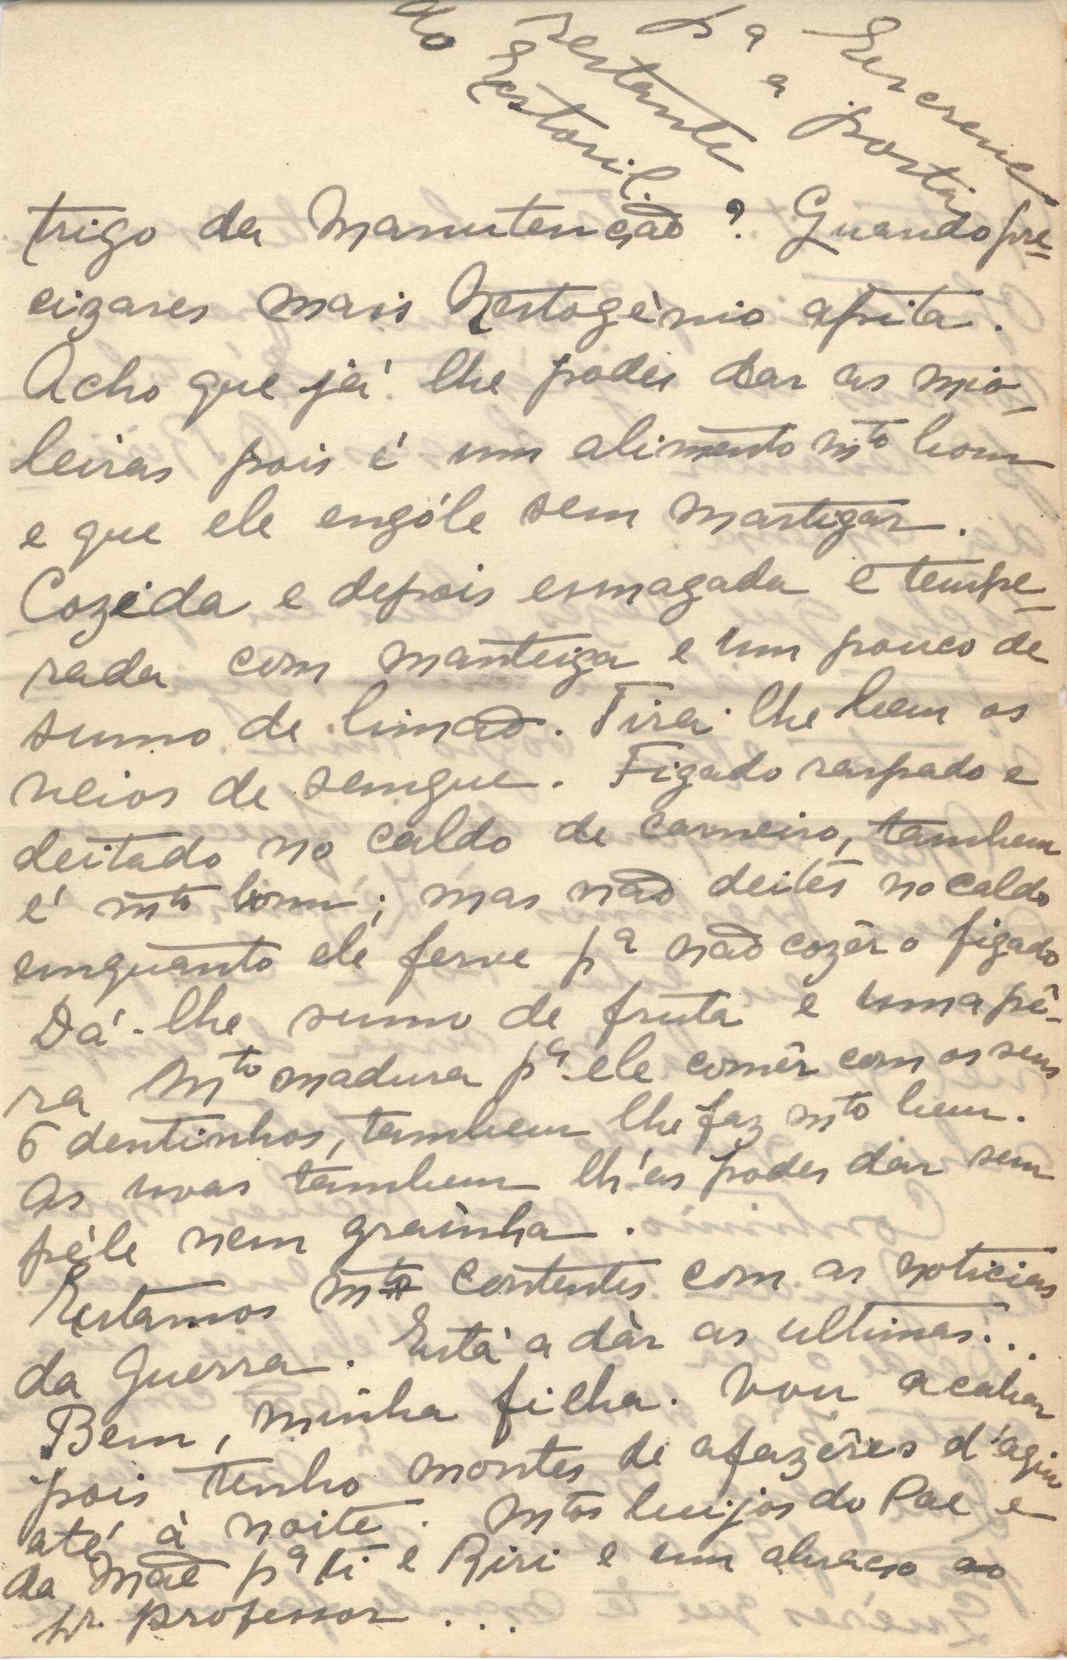 Escreve
pª a portª
restante
do Estoril.
trigo da Manutenção? Quando pre-
cizares mais Nestogènio apita.
Acho que já lhe podes dar as mio-
leiras pois é um alimento mto bom
e que ele engóle sem mastigar.
Cozida e depois esmagada e tempe-
rada com manteiga e um pouco de
sumo de limão. Tira-lhe bem os
veios de sangue. Figado raspado e
deitado no caldo de carneiro, tambem
é mto bom; mas não deites no caldo
emquanto ele ferve pª não cozêr o figado
Dá-lhe sumo de fruta e uma pê-
ra Mto madura pª ele comêr com os seus
6 dentinhos, tambem lhe faz mto bem.
As uvas tambem lh'as podes dar sem
péle nem graínha.
Estamos mto contentes com as noticias
da Guerra. Está a dàr as ultimas...
Bem, minha filha. Vou acabar
pois tenho montes de afazêres d'aqui
até à noite. Mtos beijos do Pae e
da Mãe pª ti e Riri e um abraço ao
Sr. professor...